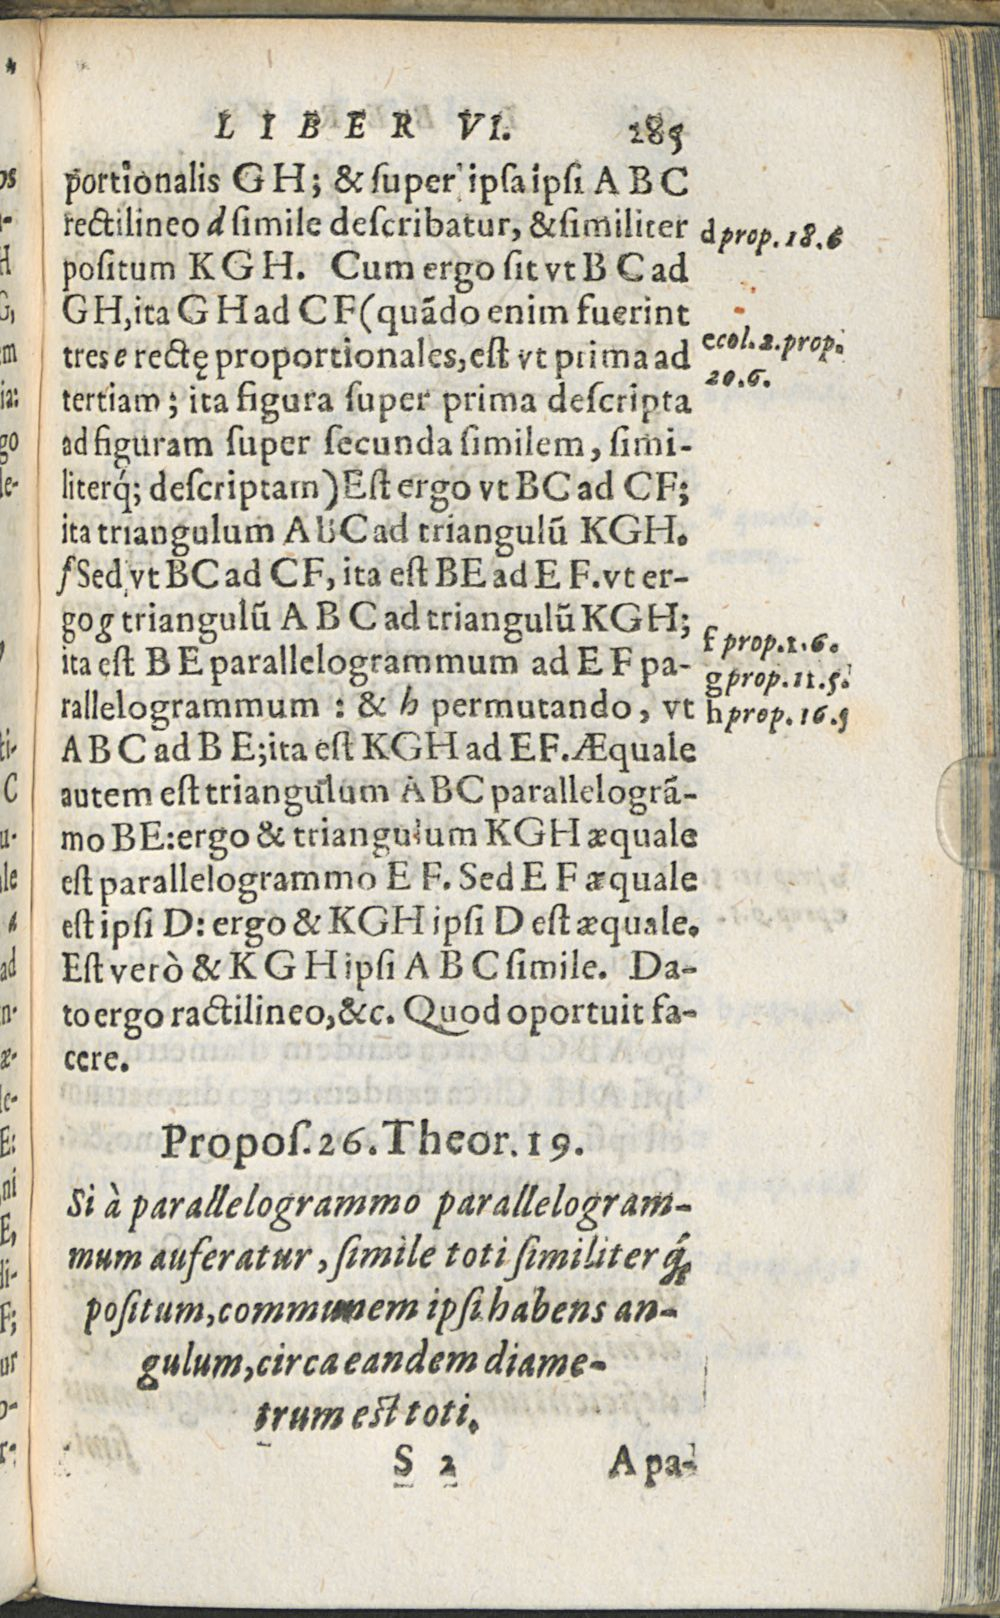 LIBER VI. 285
portionalis GH; & super ipsa ipsi ABC
rectilineo d simile describatur, & similiter
positum KGH. Cum ergo sit vt BC ad
GH, ita GH ad CF (quãdo enim fuerint
tres e rectę proportionales, est vt prima ad
tertiam; ita figura super prima descripta
ad figuram super secunda similem, simi-
literq́; descriptam) Est ergo vt BC ad CF;
ita triangulum ABC ad triangulũ KGH.
f Sed vt BC ad CF, ita est BE ad EF. vt er-
go g triangulũ ABC ad triangulũ KGH;
ita est BE parallelogrammum ad EF pa-
rallelogrammum: & h permutando, vt
ABC ad BE; ita est KGH ad EF. Æquale
autem est triangulum ABC parallelogrã-
mo BE: ergo & triangulum KGH æquale
est parallelogrammo EF. Sed EF æquale
est ipsi D: ergo & KGH ipsi D est æquale.
Est verò & KGH ipsi ABC simile. Da-
to ergo ractilineo, &c. Quod oportuit fa-
cere.
d prop. 18. 6
e col. 2. prop.
20. 6.
f prop. 1. 6.
g prop. 11. 5.
h prop. 16. 5
Propos. 26. Theor. 19.
Si à parallelogrammo parallelogram-
mum auferatur, simile toti similiter q́;
positum, communem ipsi habens an-
gulum, circa eandem diame-
trum est toti.
S 2 A pa-